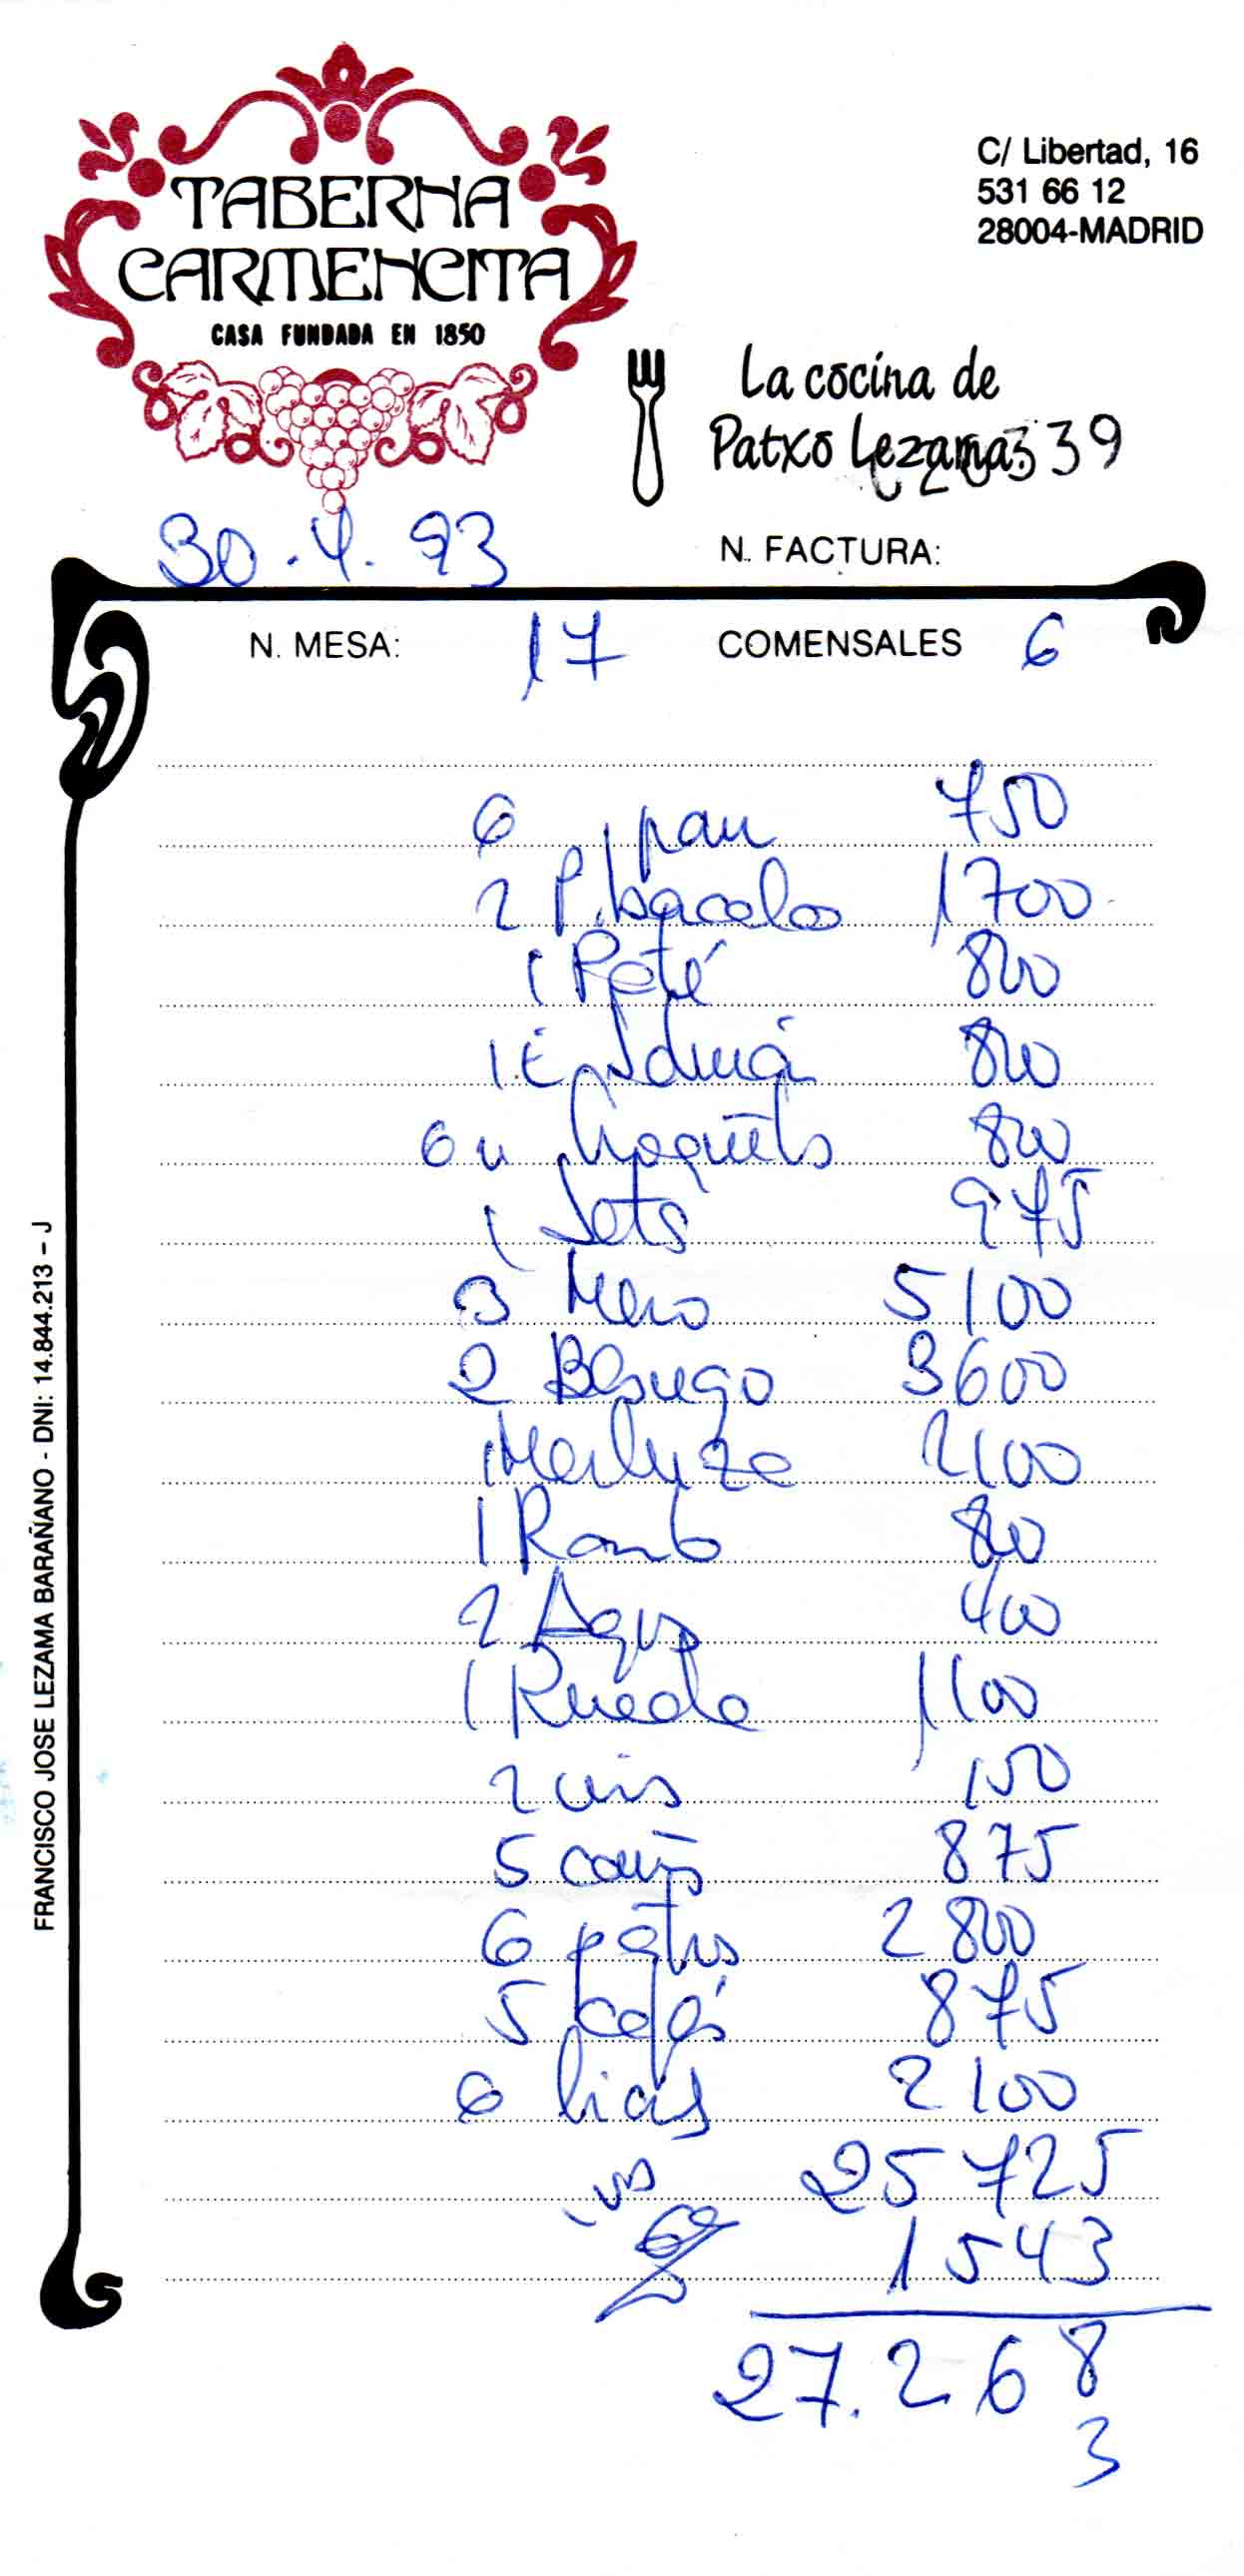 TABERNA
CARMENCITA
CASA FUNDADA EN 1850
C/ Libertad, 16
531 66 12
28004-MADRID
La cocina de
Patxo Lezama
339
30.4.93
N. FACTURA:
N. MESA: 17 COMENSALES 6
6 pan 750
2 P. bacalao 1700
1 Paté 800
1 E. 800
6 u Croquets 800
1 Setas 975
3 Mero 5100
2 Besugo 3600
1 Merluza 2100
1 800
2 Agua 400
1 Rueda 1100
2 150
5 875
6 2800
5 cafés 875
6 2100
25725
1543
27.268
3
FRANCISCO JOSE LEZAMA BARAÑANO - DNI: 14.844.213 - J